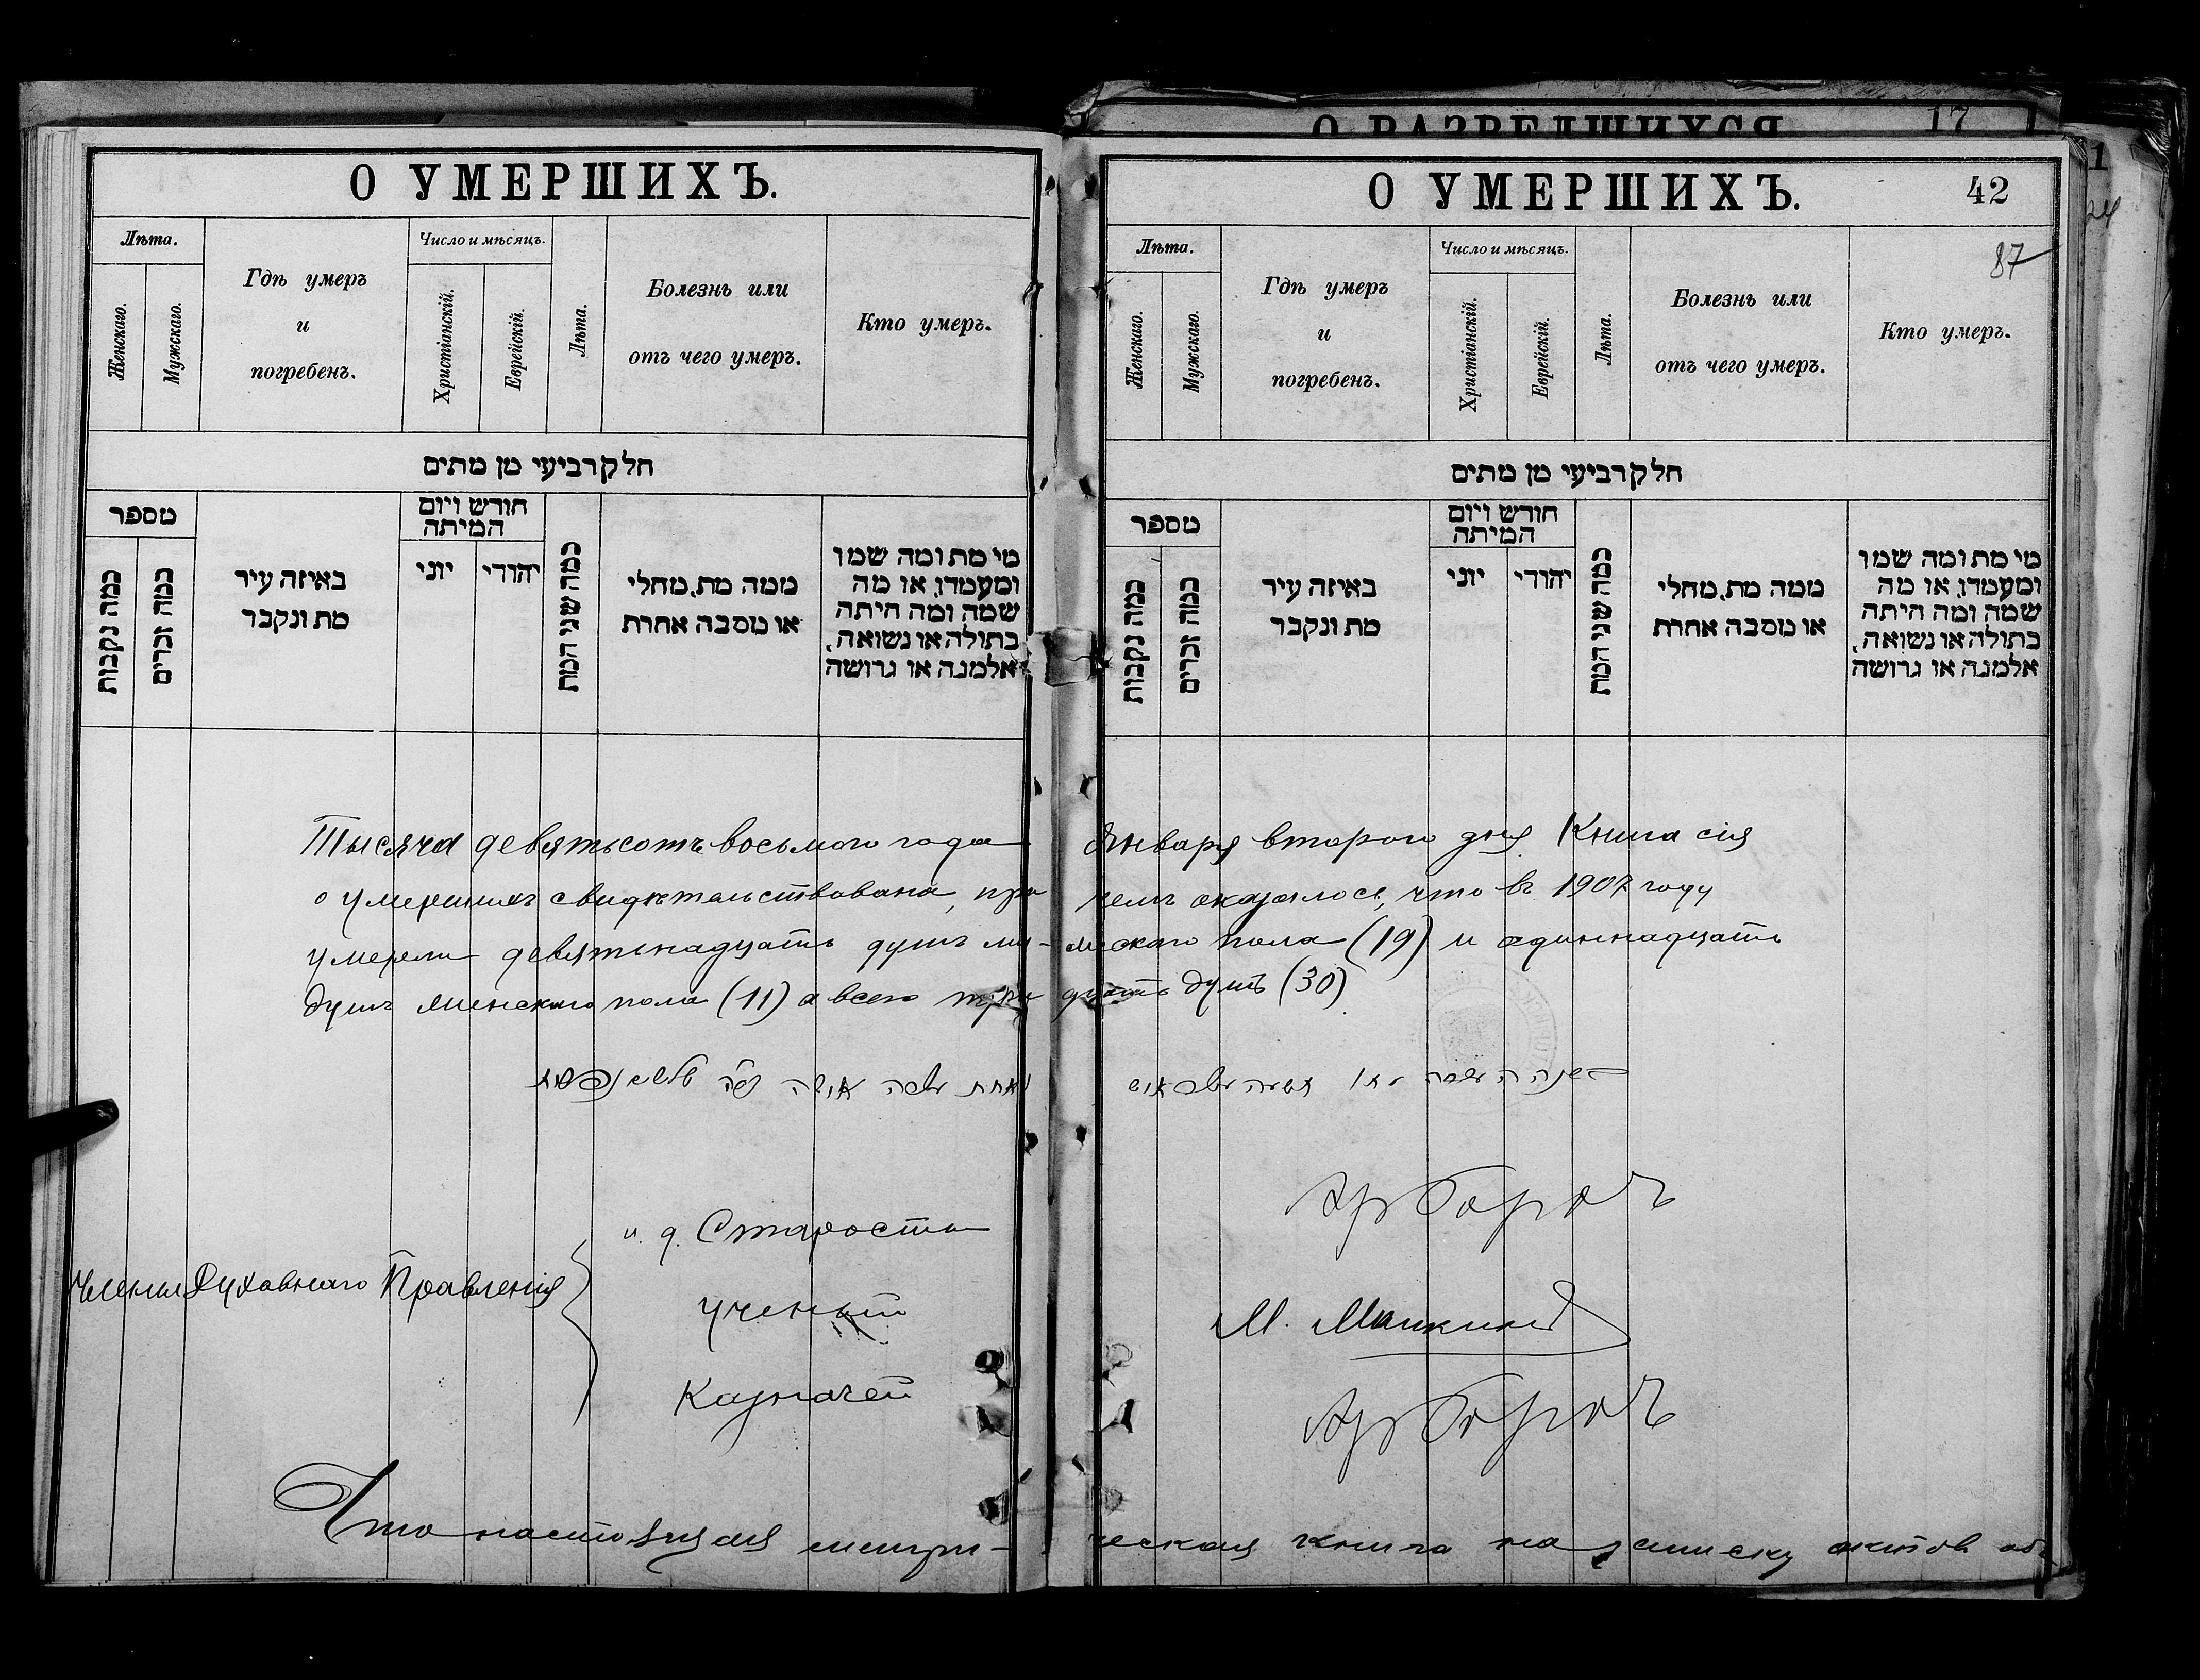 О РАЗВЕДШИХСЯ 17
О УМЕРШИХЪ.
Лѣта.
Женскаго.
Мужскаго.
Гдѣ умеръ
и
погребенъ.
Число и мѣсяцъ.
Христіанскій.
Еврейскій.
Лѣта.
Болезнь или
отъ чего умеръ.
Кто умеръ.
חלק רביעי מן מתים
מספר
כמה נקבות
כמה זכרים
באיזה עיר
מת ונקבר
חודש ויום
המיתה
יוני
יהודי
כמה שני המת
ממה מת, מחלי
או מסבה אחרת
מי מת ומה שמו
ומעמדו, או מה
שמה ומה היתה
בתולה או נשואה,
אלמנה או גרושה
О УМЕРШИХЪ. 42
87
Лѣта.
Женскаго.
Мужскаго.
Гдѣ умеръ
и
погребенъ.
Число и мѣсяцъ.
Христіанскій.
Еврейскій.
Лѣта.
Болезнь или
отъ чего умеръ.
Кто умеръ.
חלק רביעי מן מתים
מספר
כמה נקבות
כמה זכרים
באיזה עיר
מת ונקבר
חודש ויום
המיתה
יוני
יהודי
כמה שני המת
ממה מת, מחלי
או מסבה אחרת
מי מת ומה שמו
ומעמדו, או מה
שמה ומה היתה
בתולה או נשואה,
אלמנה או גרושה
Тысяча девятьсотъ восьмого года Января второго дня. Книга сія
о умершихъ свидѣтельствована, при чемъ оказалось, что въ 1907 году
умерли девятьнадцать душъ му- жского пола (19) и одиннадцать
душъ женскаго пола (11) а всего три дцать душъ (30)
Члены Духовнаго Правленія
и. д. Старосты
Ученый
М.
Казначей
Что настоящая метри- ческая книга на записку актов